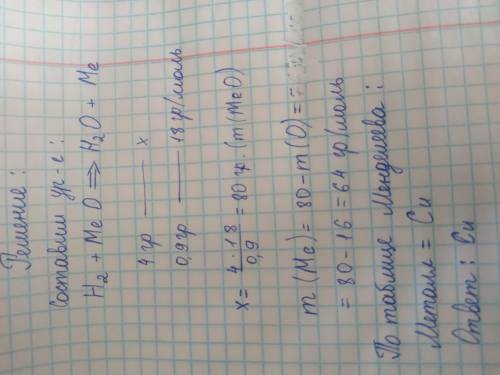 Решение:
Составим ур-е:
H₂ + MeO ⟹ H₂O + Me
4 гр —— x
0,9 гр —— 18 гр/моль
x = 4 · 18 / 0,9 = 80 гр. (m(MeO)
m (Me) = 80 - m(O) =
= 80 - 16 = 64 гр/моль
По таблице Менделеева:
Металл = Cu
Ответ: Cu